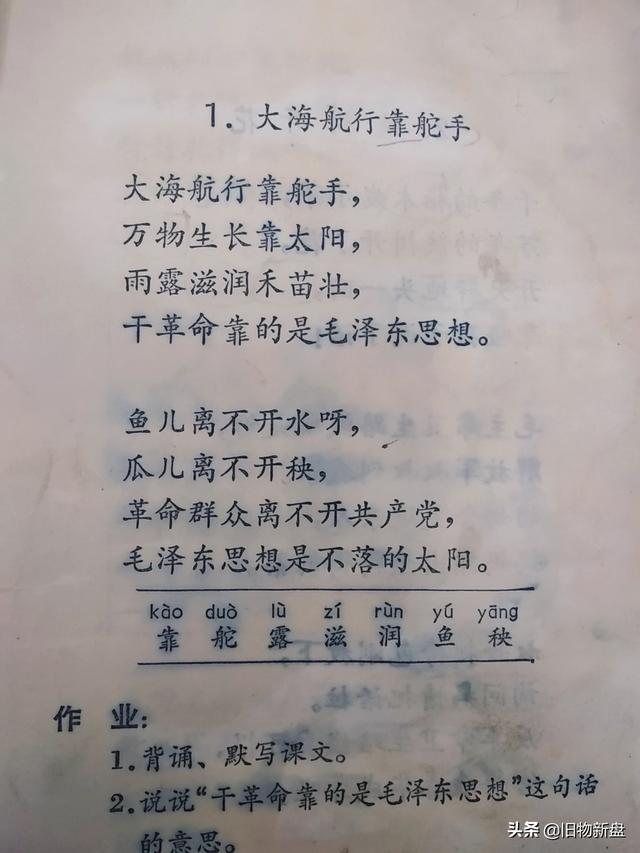 1. 大海航行靠舵手
大海航行靠舵手，
万物生长靠太阳，
雨露滋润禾苗壮，
干革命靠的是毛泽东思想。
鱼儿离不开水呀，
瓜儿离不开秧，
革命群众离不开共产党，
毛泽东思想是不落的太阳。
kào duò lù zī rùn yú yāng
靠 舵 露 滋 润 鱼 秧
作 业：
1. 背诵、默写课文。
2. 说说“干革命靠的是毛泽东思想”这句话
的意思。
头条 @旧物新盘